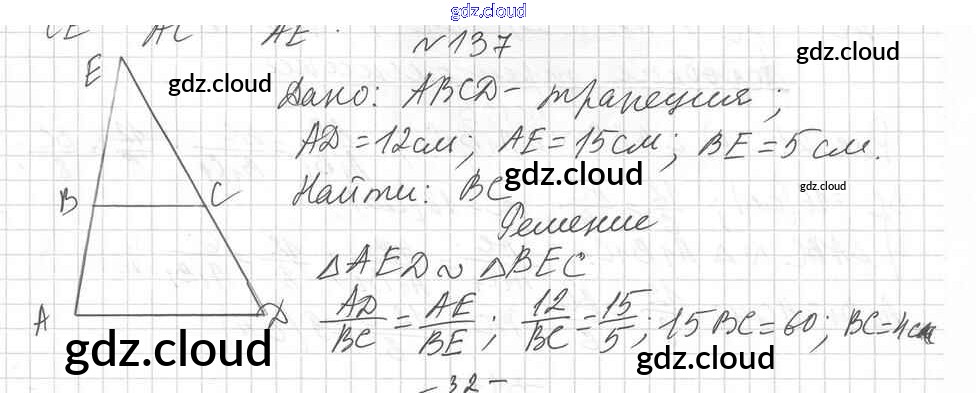 gdz.cloud
CE AC AE .
№137
gdz.cloud
E
gdz.cloud
Дано: ABCD - трапеция;
AD = 12 см; AE = 15 см; BE = 5 см.
gdz.cloud
gdz.cloud
Найти: BC
B C
Решение
△AED ~ △BEC
AD/BC = AE/BE; 12/BC = 15/5; 15 BC = 60; BC = 4 см
A D
gdz.cloud
gdz.cloud
- 32 -